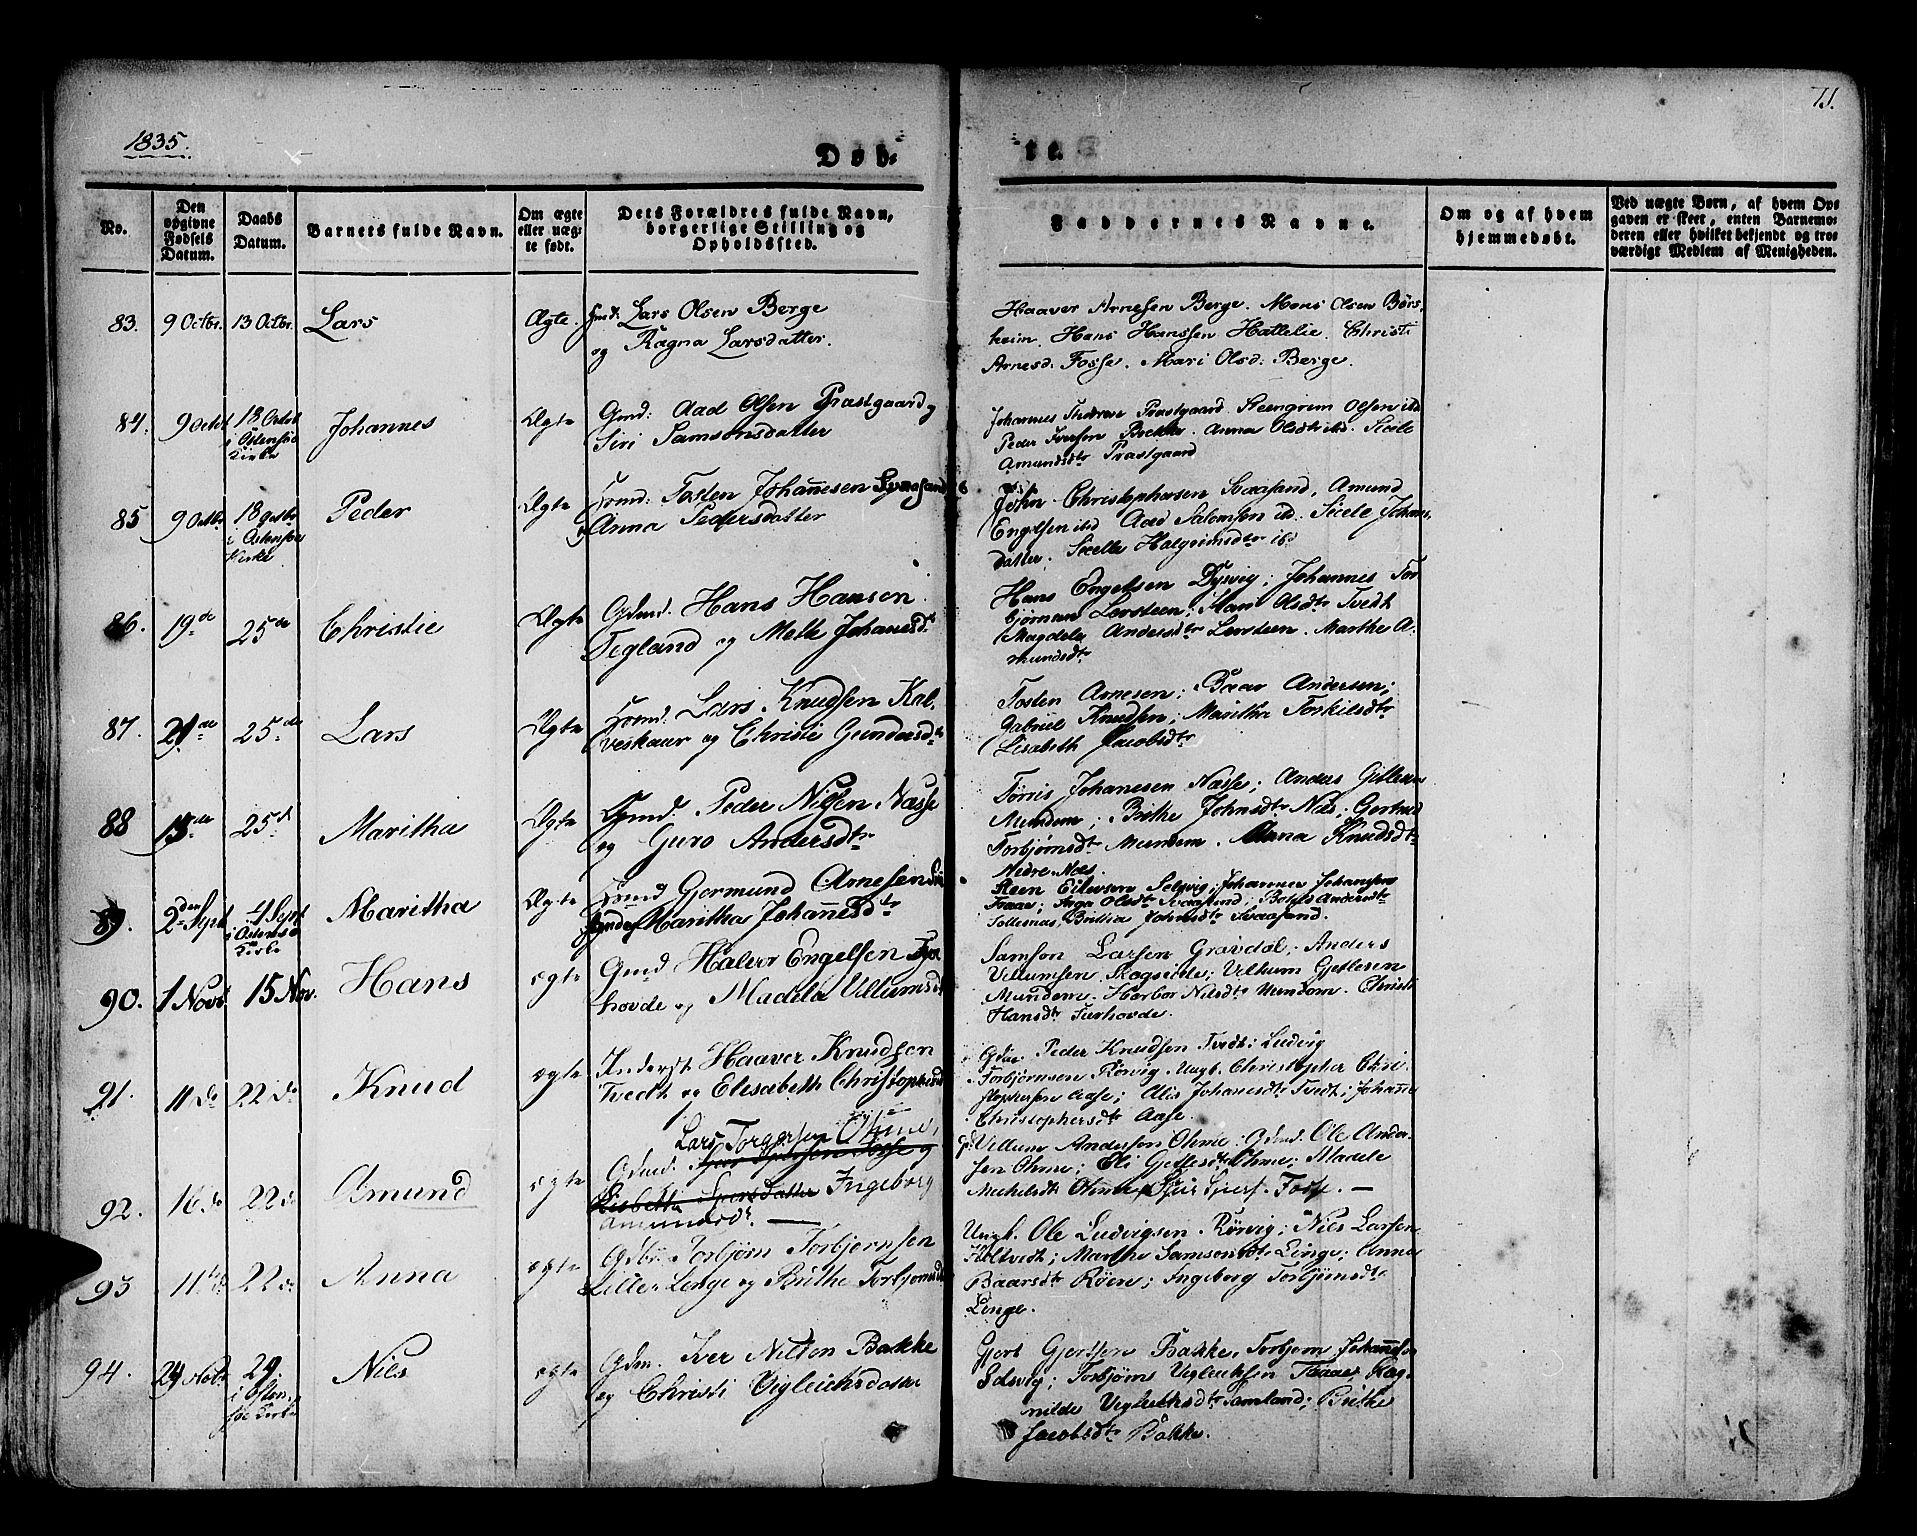 71.
1835.
Døb-
te.
No.
Den opgivne Fødsels Datum.
Daabs Datum.
Barnets fulde Navn.
Om ægte eller uægte født.
Dets Forældres fulde Navn, borgerlige Stilling og Opholdssted.
Faddernes Navne.
Om og af hvem hjemmedøbt.
Ved uægte Børn, af hvem Opgaven er skeet, enten Barnemoderen eller hvilket bekjendt og troværdigt Medlem af Menigheden.
83. 9 Octbr. 13 Octbr. Lars Ægte. Gmd: Lars Olsen Berge
og Ragna Larsdatter.
Haaver Arnesen Berge. Mons Olsen Børs-
heim. Hans Hanssen Hattelie. Christi
Arnesd: Fosse. Mari Olsd: Berge.
84. 9 Octbr 18 Octbr i Østensø Kirke Johannes Ægte Gmd: Aad Olsen Præstgaard og
Siri Samsonsdatter
Johannes Præstgaard Steengrim Olsen ibd
Peder Iversen Bakke. Anna Olsdtr ibd. Sicele
Amundsdtr Præstgaard
85 9 Octbr 18 Octbr i Østensøe Kirke Peder Ægte Gmd: Tosten Johannesen Svaasand
og Anna Pedersdatter
John Christophersen Svaasand, Amund
Engelsen ibd Aad Salomsen ibd. Sicele Johans-
datter. Sicelle Halgrimsdtr ibd
86. 19de 25de Christie Ægte Gdmd. Hans Hansen
Tegland og Mette Johannesdtr
Hans Engelsen Dysvig; Johannes Tor-
bjørnsen Lersteen; Mari Olsdtr Tvedt
Magdela Andersdtr Lersteen. Marthe A-
mundsdtr
87. 21de 25de Lars Ægte Gmd: Lars Knudsen Kal-
veskaur og Christie Gundersdtr
Tosten Arnesen; Baar Andersen;
Gabriel Knudsen; Maritha Torkilsdtr
Lisabeth Jacobsdtr
88 13de 25d Maritha Ægte Gmd. Peder Nilsen Næsse
og Guro Andersdtr
Tørris Johannesen Næsse; Anders Gitlesen
Mundem; Brithe Johnsdtr Næs; Gertrud
Torbjørnsdtr Mundem. Anna Knudsdtr
Nedre Næs.
89. 2den Sept 4 Sept i Østensø Kirke Maritha Ægte Gmd Gjermund Arnesen
Maritha Johannesdtr
Steen Eilevsen Selsvig; Johannes Johansen
Traae; Inga Olsdtr Svaasand; Andersdtr
Brithe Johnsdtr Svaasand.
90. 1 Novb 15 Nov. Hans ægte Gmd Halvor Engelsen
hovde og Madela Villumsdtr
Samson Larsen Gravdal; Anders
Villumsen Skogseide; Vilhum Gjetlesen
Mundem. Harbor Nilsdtr Mundem. Christi
Hansdtr Tierhovde.
91. 11 Do 22 Do Knud ægte Inderst Haaver Knudsen
Tvedt og Elisabeth Christophersd
Gdm Peder Knudsen Tvedt; Ludvig
Torbjørnsen Rørvig. Ungk. Christopher Chri-
stophersen Aase; Alis Johannesdtr Tvedt; Johanne
Christophersdtr Aase.
92. 16 Do 22 Do Amund ægte Lars Torgersen Ohme,
Gdmd. Ingeborg
Amundsdr. —
Villum Andersen Ohme; Gdmd. Ole Ander-
sen Ohme; Eli Gjetlesdtr Ohme; Madele
Michelsdtr Ohme; Sjur Sjurs. Fosse. —
93 11 Do 22 Do Anna ægte Gdbr. Torbjørn Torbjørnsen
Lille Linge og Brithe Torbjørnsdtr
Ungk. Ole Ludvigsen Rørvig; Niels Larsen
Holtvedt; Marthe Samsonsdtr Linge; Anna
Baarsdtr Røen; Ingeborg Torbjørnsdtr
Linge.
94. 24 Novbr 29. i Østensøe Kirke Nils ægte Gdm. Iver Nilsen Bakke
og Christi Vigleiksdatter
Gjert Gjertsen Bakke, Torbjørn Johannesen
Selsvig; Torbjørns Vigleiksen Traae; Rag-
nilde Vigleiksdtr Samland; Brithe
Jacobsdtr Bakke.